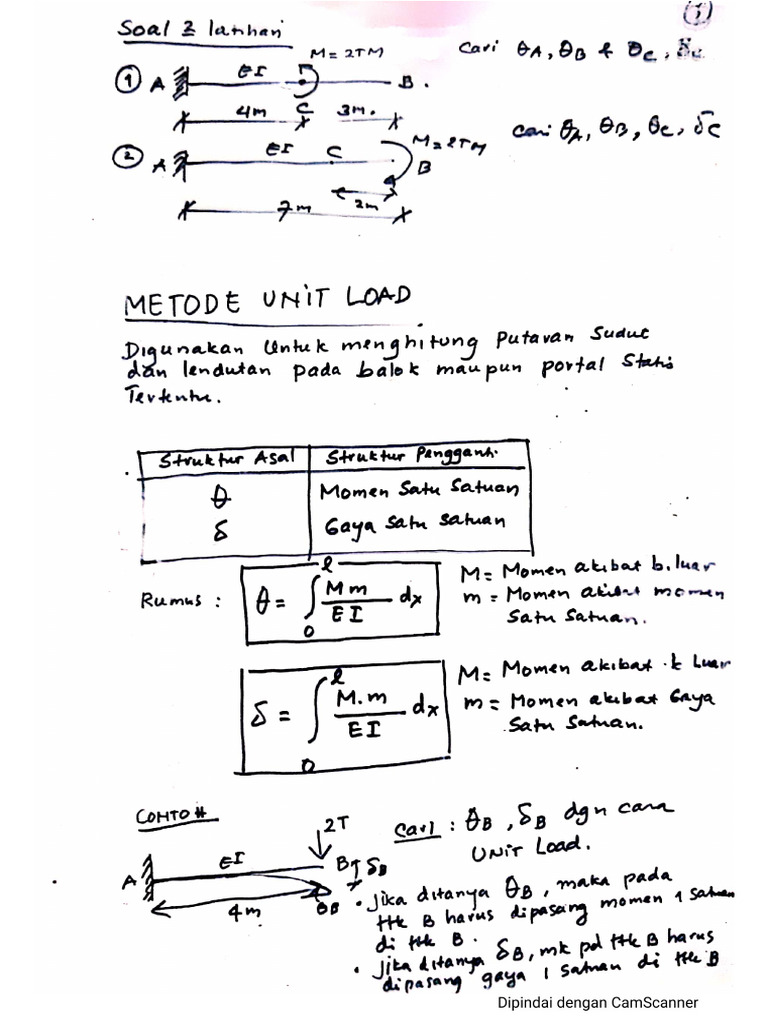 (1)
Soal 2 latihan
M = 2TM
Cari θA, θB & θC,
① A EI B.
4m C 3m.
Cari θA, θB, θC, δC
② A EI C M = 2TM
B
2m
7m
METODE UNIT LOAD
Digunakan Untuk menghitung Putaran Sudut
dan lendutan pada balok maupun portal Statis
Tertentu.
Struktur Asal Struktur Pengganti.
θ Momen Satu Satuan
δ Gaya Satu Satuan
Rumus : θ = ∫₀ˡ Mm/EI dx
M = Momen akibat b. luar
m = Momen akibat momen
Satu Satuan.
δ = ∫₀ˡ M.m/EI dx
M = Momen akibat b. Luar
m = Momen akibat Gaya
Satu Satuan.
CONTOH
2T
Cari : θB, δB dgn cara
UNIT Load.
A EI B δB
4m θB
• Jika ditanya θB, maka pada
ttk B harus dipasang momen 1 satuan
di ttk B.
• Jika ditanya δB, mk pd ttk B harus
dipasang gaya 1 satuan di ttk B
Dipindai dengan CamScanner